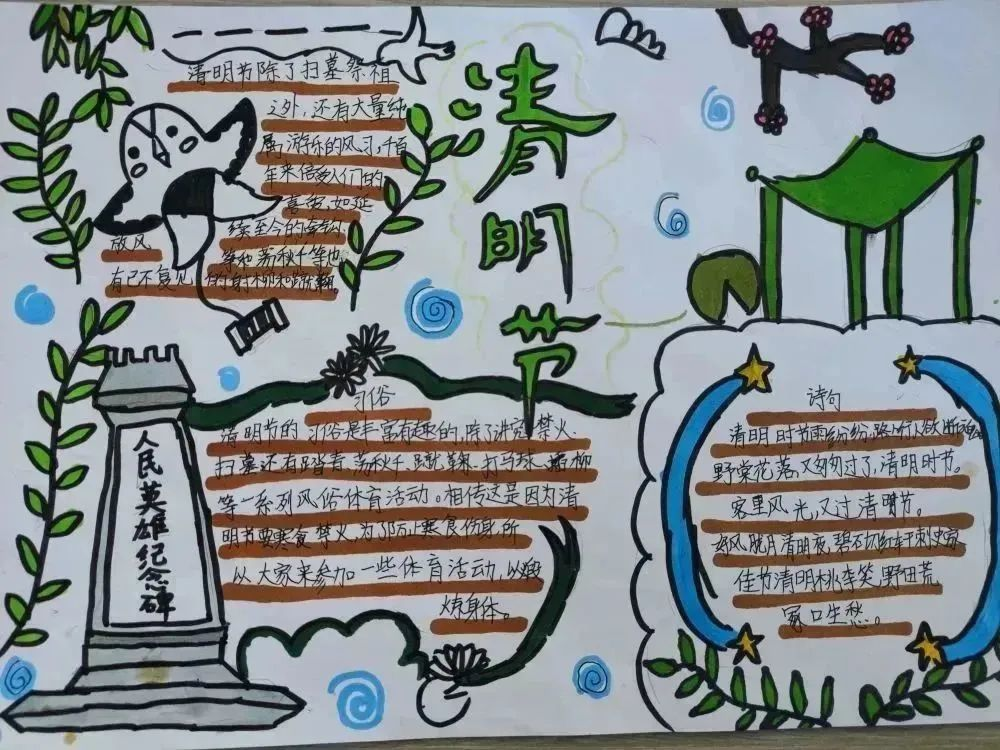 清明节
清明节除了扫墓祭祖
之外，还有大量纯
属游乐的风习，千百
年来倍受人们的
喜爱，如延
续至今的牵钩
放风
等和荡秋千等也
有已不复见 的射柳和蹴鞠
人民英雄纪念碑
习俗
清明节的习俗是丰富有趣的，除了讲究禁火
扫墓还有踏青、荡秋千、蹴鞠、打马球、插柳
等一系列风俗体育活动。相传这是因为清
明节要寒食禁火，为了防止寒食伤身，所
以大家来参加一些体育活动，以锻
炼身体。
诗句
清明时节雨纷纷，路上行人欲断魂
野棠花落，又匆匆过了，清明时节。
客里风光，又过清明节。
好风胧月清明夜，碧砌红轩刺史家
佳节清明桃李笑，野田荒
冢 生愁。